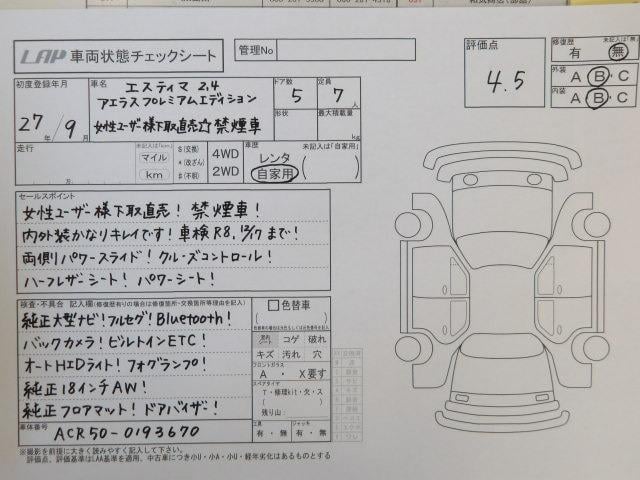 LAP 車両状態チェックシート
管理No
評価点
4.5
修復歴 未記入は「無」
有 無
外装 A B・C
内装 A B・C
初度登録年月
27年/9月
車名 エスティマ 2.4
アエラスプレミアムエディション
女性ユーザー様下取直売☆禁煙車
ドア数 5
定員 7人
形状
最大積載量 kg
走行
未記入は「km」
マイル
km
万
$(交換)
*(改ざん)
#(不明)
4WD
2WD
車歴 未記入は「自家用」
レンタ
自家用
セールスポイント
女性ユーザー様下取直売！禁煙車！
内外装かなりキレイです！車検R8.12/17まで！
両側パワースライド！クルーズコントロール！
ハーフレザーシート！パワーシート！
検査・不具合 記入欄(修復歴有りの場合は修復箇所・交換箇所等理由を記入)
純正大型ナビ！フルセグ！Bluetooth！
バックカメラ！ビルトインETC！
オートHIDライト！フォグランプ！
純正18インチAW！
純正フロアマット！ドアバイザー！
車体番号 ACR50-0193670
色替車
コゲ 破れ
キズ 汚れ 穴
フロントガラス
A ・ X要す
スペアタイヤ
T・修理kit・欠・ス
残り山：
工具 有・無
ジャッキ 有・無
※撮影を前提に大きく読みやすく記入して下さい。
評価点、評価基準はLAA基準を適用、中古車につき小U・小A・小U・経年劣化はあるものとする